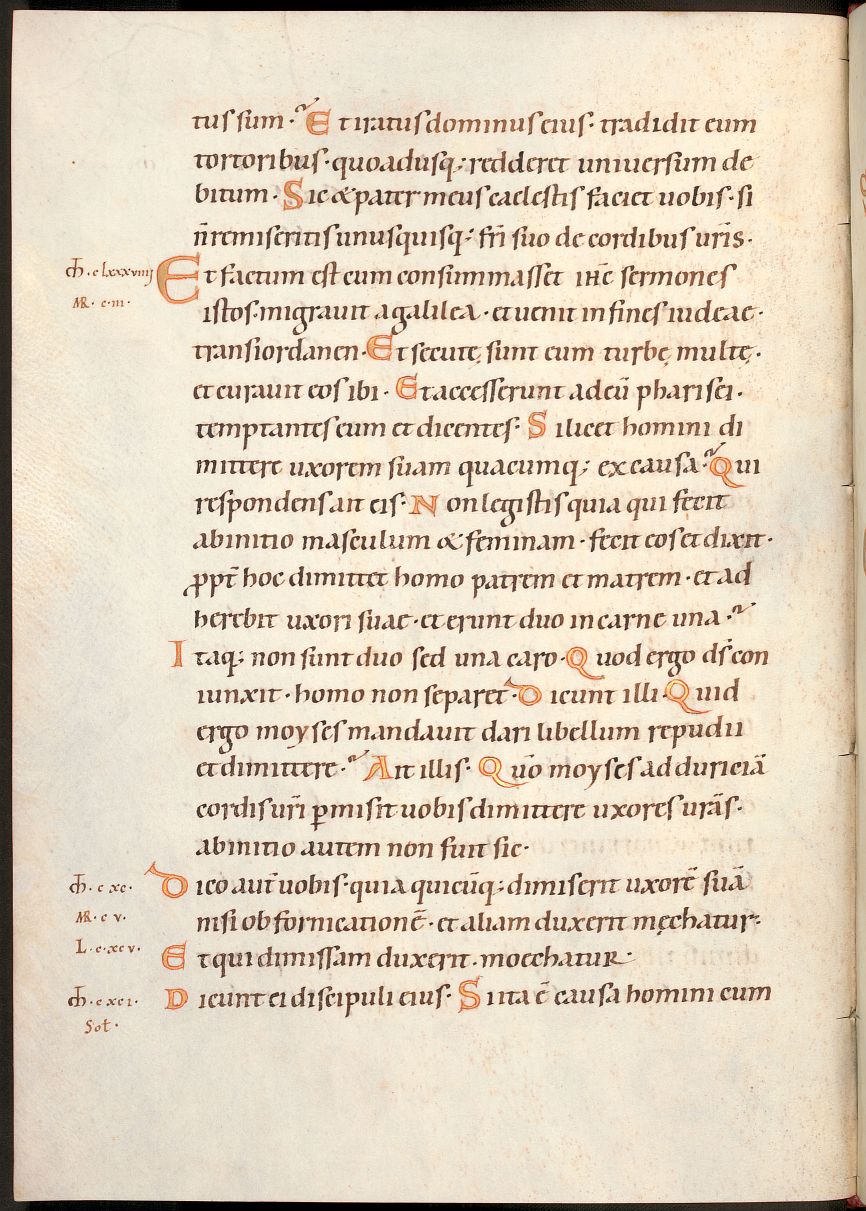 tus sum. Et iratus dominus eius. tradidit eum
tortoribus. quoadusq; redderet universum de
bitum. Sic & pater meus caelestis faciet uobis. si
n̄ remiseritis unusquisq; fr̄i suo de cordibus ur̄is.
Et factum est cum consummasset ihc̄ sermones
istos. migrauit a galilea. et uenit in fines iudeae.
transiordanen. Et secutę sunt eum turbę multę.
et curauit eos ibi. Et accesserunt ad eū pharisei.
temptantes eum et dicentes. Si licet homini di
mittere uxorem suam quacumq; ex causa. Qui
respondens ait eis. Non legistis quia qui fecit
ab initio masculum & feminam. fecit eos et dixit.
ꝓpt̄ hoc dimittet homo patrem et matrem. et ad
herebit uxori suae. et erunt duo in carne una.
Itaq; non sunt duo sed una caro. Quod ergo ds̄ con
iunxit. homo non separet. Dicunt illi. Quid
ergo moyses mandauit dari libellum repudii
et dimittere. Ait illis. Quō moyses ad duriciā
cordis ur̄i ꝑmisit uobis dimittere uxores ur̄as.
ab initio autem non fuit sic.
Dico aut̄ uobis. quia quicūq; dimiserit uxorē suā
nisi ob fornicationē. et aliam duxerit męchatur.
Et qui dimissam duxerit. moechatur.
Dicunt ei discipuli eius. Si ita ē causa homini cum
Mh̄. c lxxxviiij
MR. c. iii.
Mh̄. c xc.
MR. c v.
L. c. xcv.
Mh̄. c xci.
Sol.